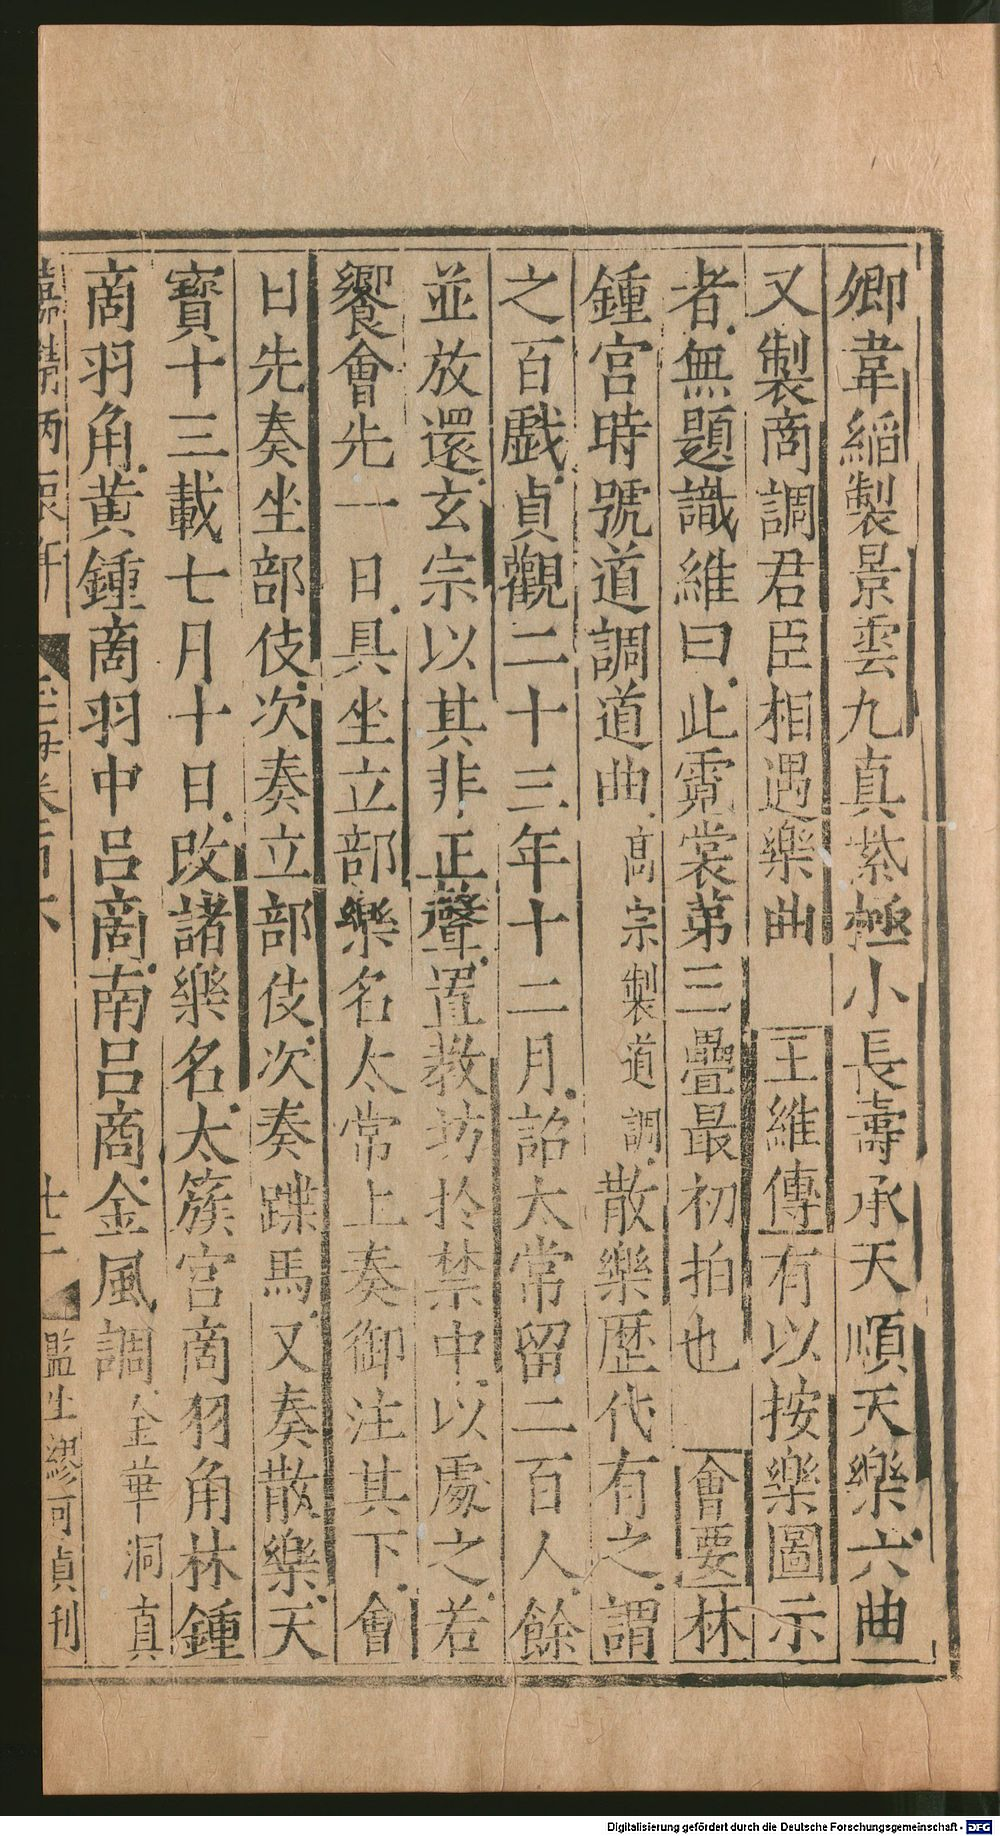 卿韋縚製景雲九真紫極小長壽承天順天樂六曲
又製商調君臣相遇樂曲　王維傳有以按樂圖示
者無題識維曰此霓裳第三疊最初拍也　會要林
鍾宮時號道調道曲高宗製道調散樂歴代有之謂
之百戲貞觀二十三年十二月詔太常留二百人餘
並放還玄宗以其非正聲置教坊於禁中以處之若
饗會先一日具坐立部樂名太常上奏御注其下會
日先奏坐部伎次奏立部伎次奏蹀馬又奏散樂天
寶十三載七月十日改諸樂名太簇宮商羽角林鍾
商羽角黃鍾商羽中呂商南呂商金風調金華洞真
嘉靖丙辰年　玉海卷一百六　十二　監生繆可貞刊
Digitalisierung gefördert durch die Deutsche Forschungsgemeinschaft - DFG